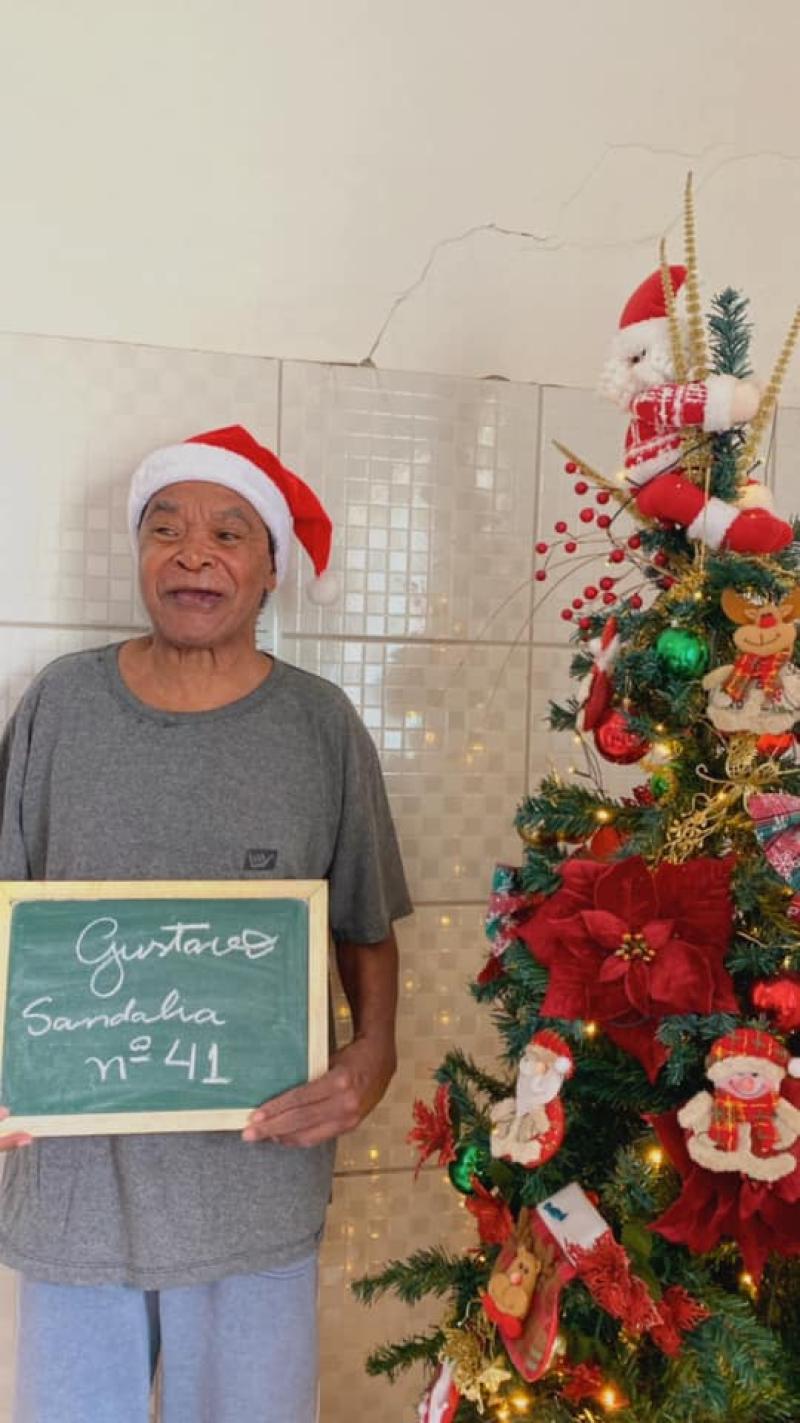 Gustavo
Sandalia
nº 41